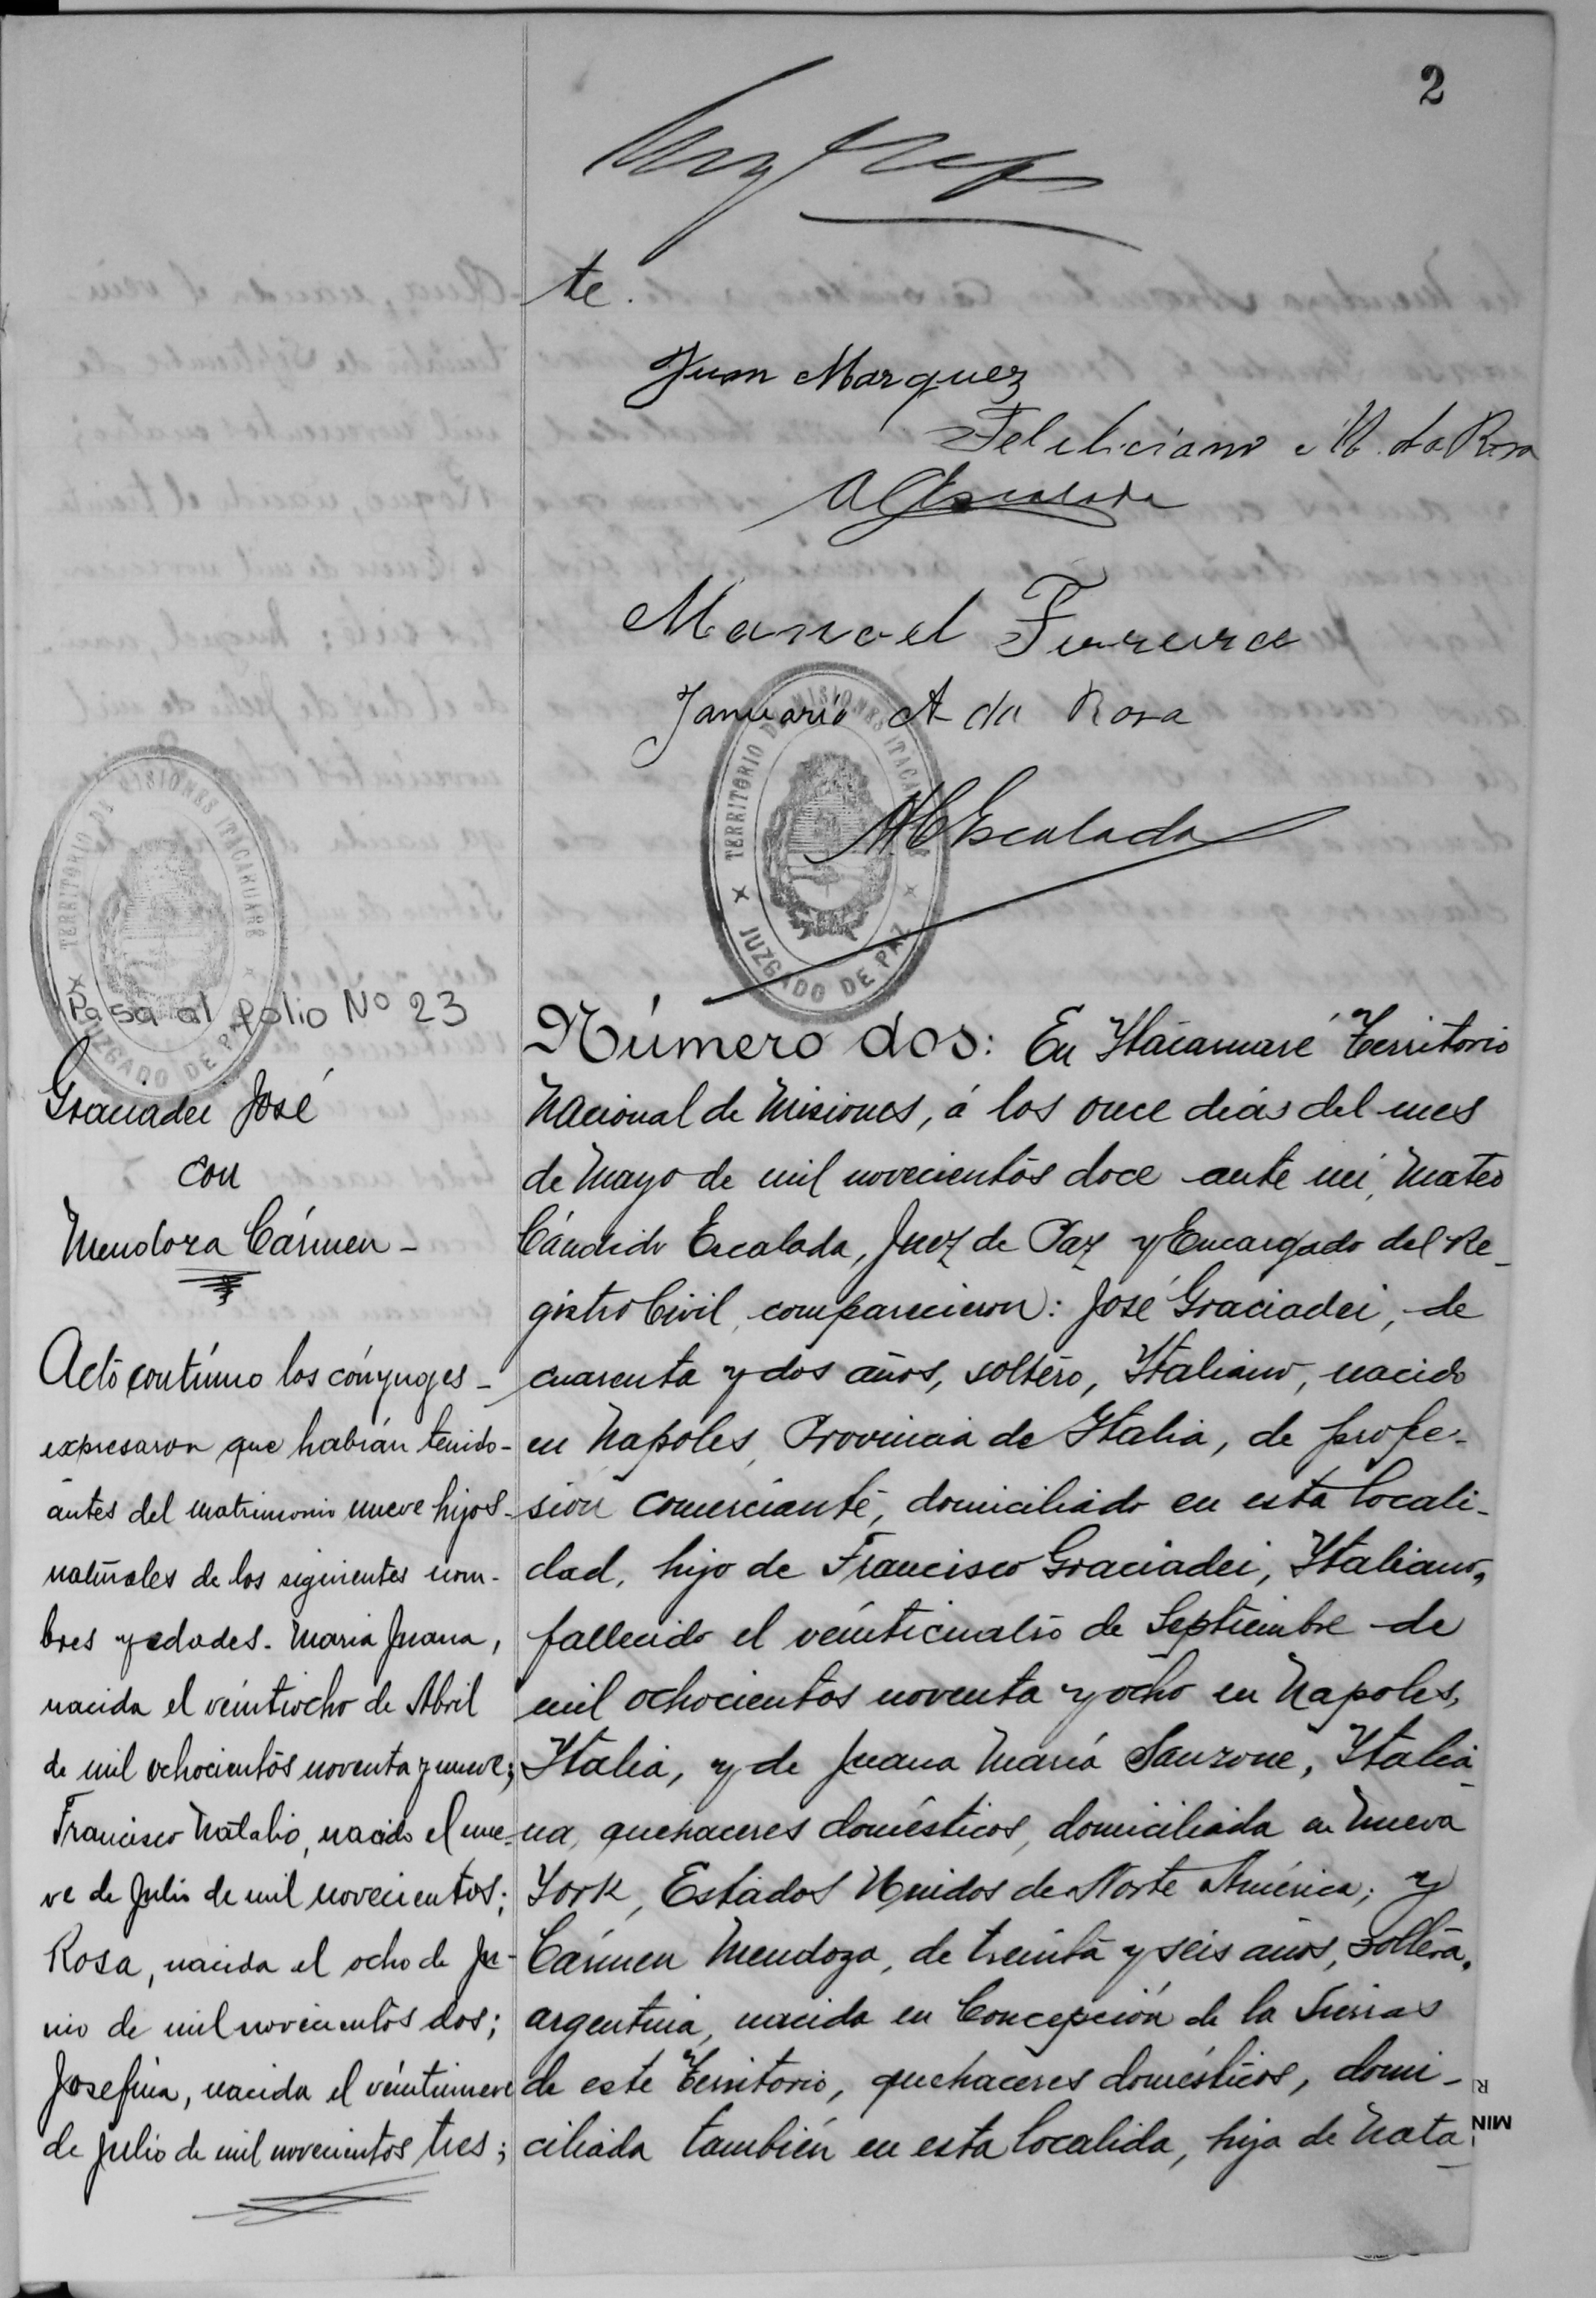 2
te.
Juan Marquez
Feleliciano M. da Rosa
Manoel Ferreira
Januario A da Rosa
TERRITORIO DE MISIONES ITACARUARE
JUZGADO DE PAZ
MCEscalada
TERRITORIO DE MISIONES ITACARUARE
JUZGADO DE PAZ
Pasa al folio No 23
Graciadei José
con
Mendoza Cármen -
Acto contínuo los cónyuges -
expresaron que habían tenido -
ántes del matrimonio nueve hijos -
naturales de los siguientes nom-
bres y edades. María Juana,
nacida el veintiocho de Abril
de mil ochocientos noventa y nueve;
Francisco Natalio, nacido el nue-
ve de Julio de mil novecientos;
Rosa, nacida el ocho de Ju-
nio de mil novecientos dos;
Josefina, nacida el veintinueve
de Julio de mil novecientos tres;
Número dos: En Itacaruaré Territorio
Nacional de Misiones, á los once días del mes
de Mayo de mil novecientos doce ante mi, Mateo
Cándido Escalada, Juez de Paz y Encargado del Re-
gistro Civil, comparecieron: José Graciadei, de
cuarenta y dos años, soltero, Italiano, nacido
en Napoles, Provincia de Italia, de profe-
sión comerciante, domiciliado en esta locali-
dad, hijo de Francisco Graciadei, Italiano,
fallecido el veinticuatro de Septiembre de
mil ochocientos noventa y ocho en Napoles,
Italia, y de Juana María Sanzone, Italia-
na, quehaceres domésticos, domiciliada en Nueva
York, Estados Unidos de Norte América; y
Cármen Mendoza, de treinta y seis años, soltera,
argentina, nacida en Concepción de la Sierras
de este Territorio, quehaceres domésticos, domi-
ciliada también en esta localida, hija de Nata-
R
MIN